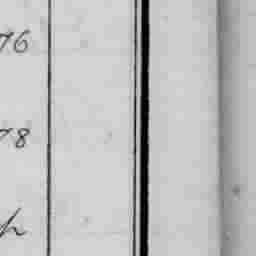 76
78